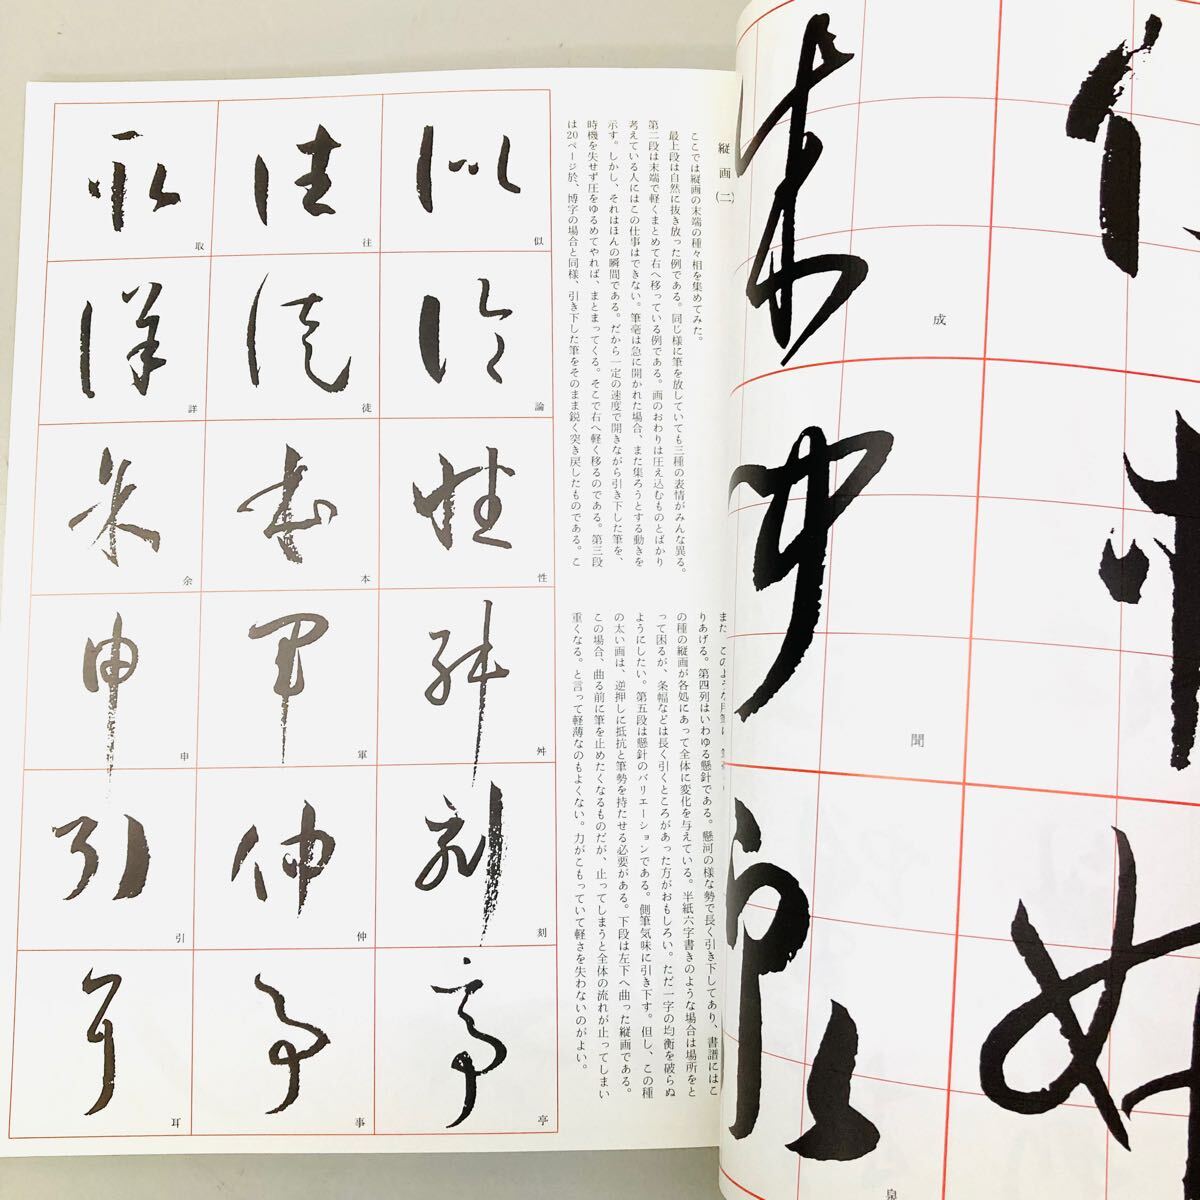 縦画(二)
ここでは縦画の末端の種々相を集めてみた。
最上段は自然に抜き放った例である。同じ様に筆を放していても三種の表情がみんな異る。
第二段は末端で軽くまとめて右へ移っている例である。画のおわりは圧え込むものとばかり
考えている人にはこの仕事はできない。筆毫は急に開かれた場合、また集ろうとする動きを
示す。しかし、それはほんの瞬間である。だから一定の速度で開きながら引き下した筆を、
時機を失せず圧をゆるめてやれば、まとまってくる。そこで右へ軽く移るのである。第三段
は20ページ於、博字の場合と同様、引き下した筆をそのまま鋭く突き戻したものである。こ
また、このような用筆は、
りあげる。第四列はいわゆる懸針である。懸河の様な勢で長く引き下してあり、書譜にはこ
の種の縦画が各処にあって全体に変化を与えている。半紙六字書きのような場合は場所をと
って困るが、条幅などは長く引くところがあった方がおもしろい。ただ一字の均衡を破らぬ
ようにしたい。第五段は懸針のバリエーションである。側筆気味に引き下す。但し、この種
の太い画は、逆押しに抵抗と筆勢を持たせる必要がある。下段は左下へ曲った縦画である。
この場合、曲る前に筆を止めたくなるものだが、止ってしまうと全体の流れが止ってしまい
重くなる。と言って軽薄なのもよくない。力がこもっていて軽さを失わないのがよい。
似
往
取
論
徒
詳
性
本
余
舛
軍
申
刻
仲
引
亭
事
耳
成
聞
泉